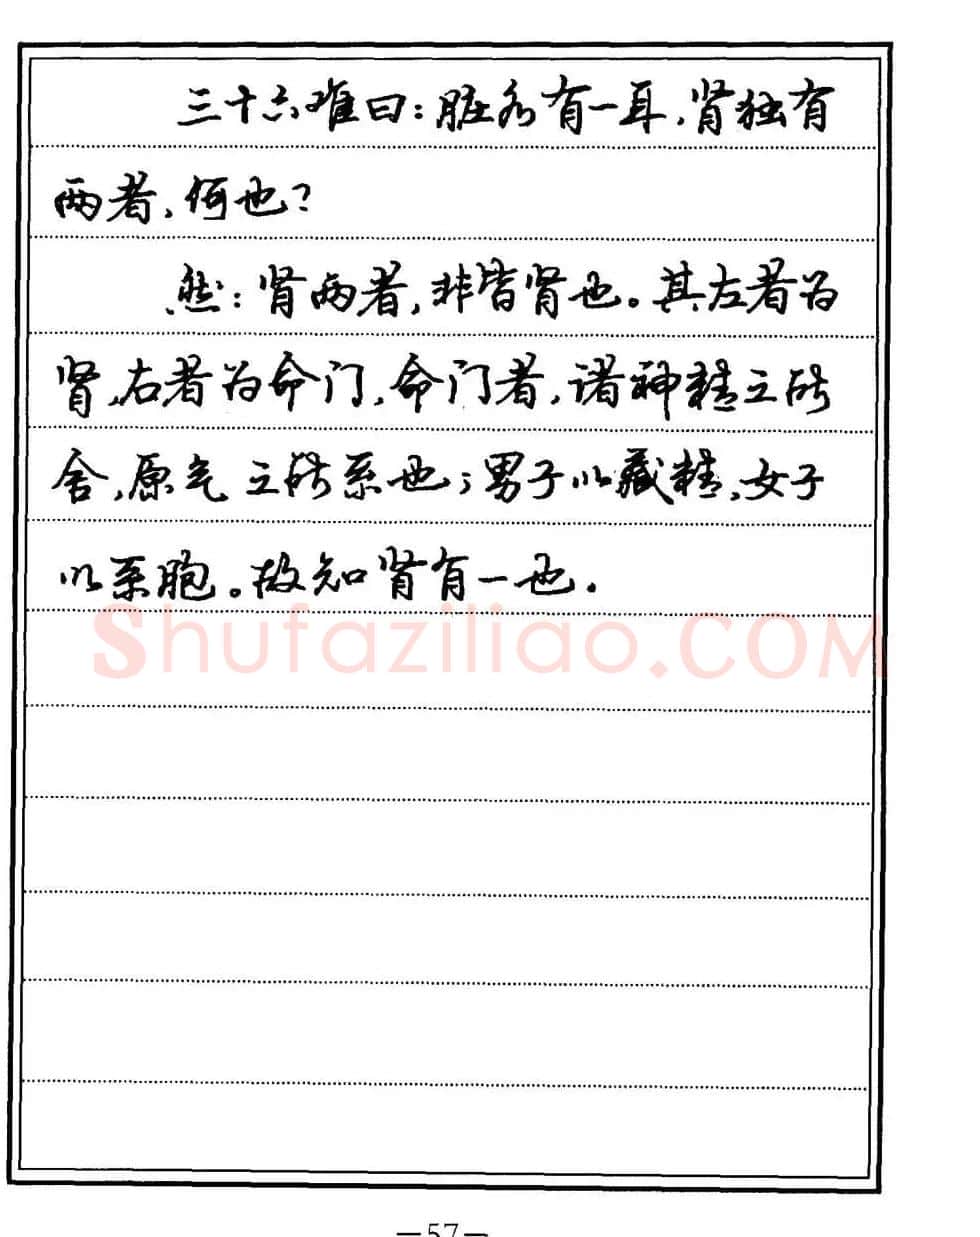 三十六难曰：脏各有一耳，肾独有
两者，何也？
然：肾两者，非皆肾也。其左者为
肾，右者为命门，命门者，诸神精之所
舍，原气之所系也；男子以藏精，女子
以系胞。故知肾有一也.
Shufaziliao.COM
—57—